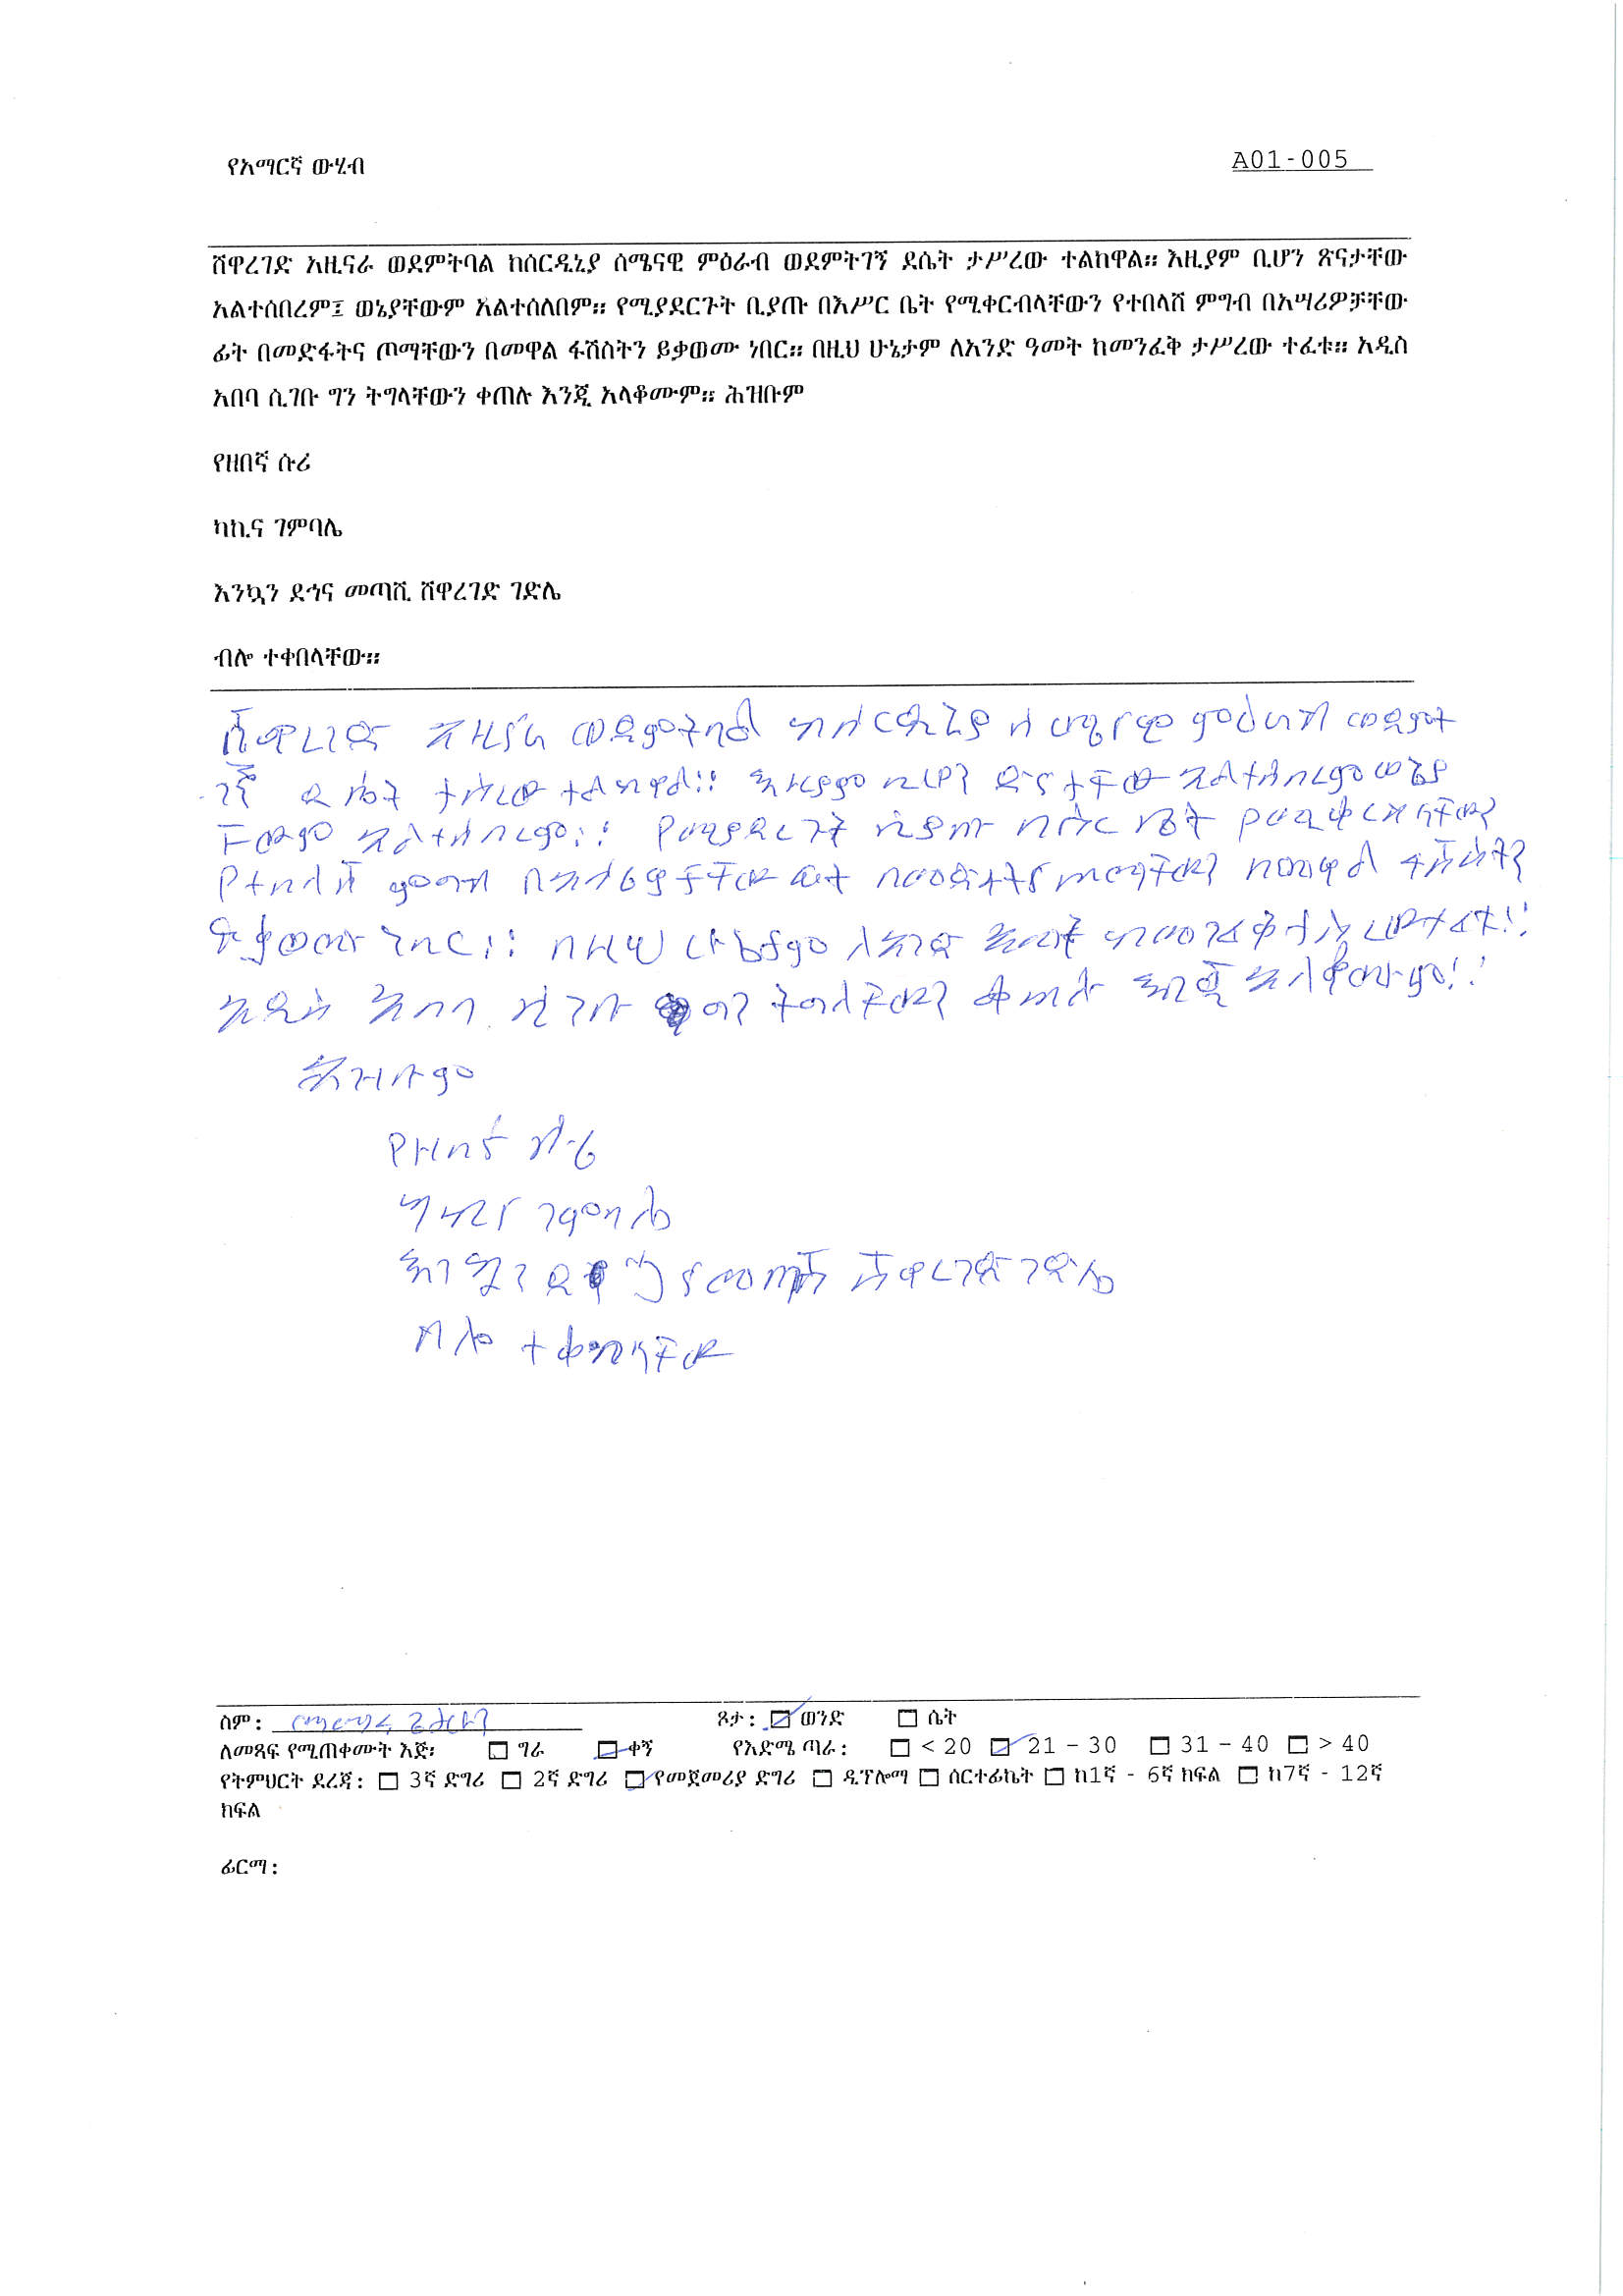 የአማርኛ ውሂብ
A01-005
ሸዋረገድ አዚናራ ወደምትባል ከሰርዲኒያ ሰሜናዊ ምዕራብ ወደምትገኝ ደሴት ታሥረው ተልከዋል። እዚያም ቢሆን ጽናታቸው
አልተሰበረም፤ ወኔያቸውም አልተሰለበም። የሚያደርጉት ቢያጡ በእሥር ቤት የሚቀርብላቸውን የተበላሸ ምግብ በአሣሪዎቻቸው
ፊት በመድፋትና ጦማቸውን በመዋል ፋሽስትን ይቃወሙ ነበር። በዚህ ሁኔታም ለአንድ ዓመት ከመንፈቅ ታሥረው ተፈቱ። አዲስ
አበባ ሲገቡ ግን ትግላቸውን ቀጠሉ እንጂ አላቆሙም። ሕዝቡም
የዘበኛ ሱሪ
ካኪና ገምባሌ
እንኳን ደኅና መጣሺ ሸዋረገድ ገድሌ
ብሎ ተቀበላቸው።
ሸዋረገድ አዚናራ ወደምትባል ከሰርዲኒያ ሰሜናዊ ምዕራብ ወደምት
ገኝ ደሴት ታሥረው ተልከዋል። እዚያም ቢሆን ጽናታቸው አልተሰበረም ወኔያ
ቸውም አልተሰበረም። የሚያደርጉት ቢያጡ በእሥር ቤት የሚቀርብላቸውን
የተበላሸ ምግብ በአሳሪዎቻቸው ፊት በመድፋትና ጦማቸውን በመዋል ፋሽስትን
ይቃወሙ ነበር። በዚህ ሁኔታም ለአንድ አመት ከመንፈቅ ታሥረው ተፈቱ።
አዲስ አበባ ሲገቡ ግን ትግላቸውን ቀጠሉ እንጂ አላቆሙም።
ሕዝቡም
የዘበኛ ሱሪ
ካኪና ገምባሌ
እንኳን ደኅና መጣሺ ሸዋረገድ ገድሌ
ብሎ ተቀበላቸው
ስም: ጾታ: ወንድ ሴት
ለመጻፍ የሚጠቀሙት እጅ፡ ግራ ቀኝ የእድሜ ጣራ: < 20 21 – 30 31 – 40 > 40
የትምህርት ደረጃ: 3ኛ ድግሪ 2ኛ ድግሪ የመጀመሪያ ድግሪ ዲፕሎማ ሰርተፊኬት ከ1ኛ - 6ኛ ክፍል ከ7ኛ - 12ኛ
ክፍል
ፊርማ: